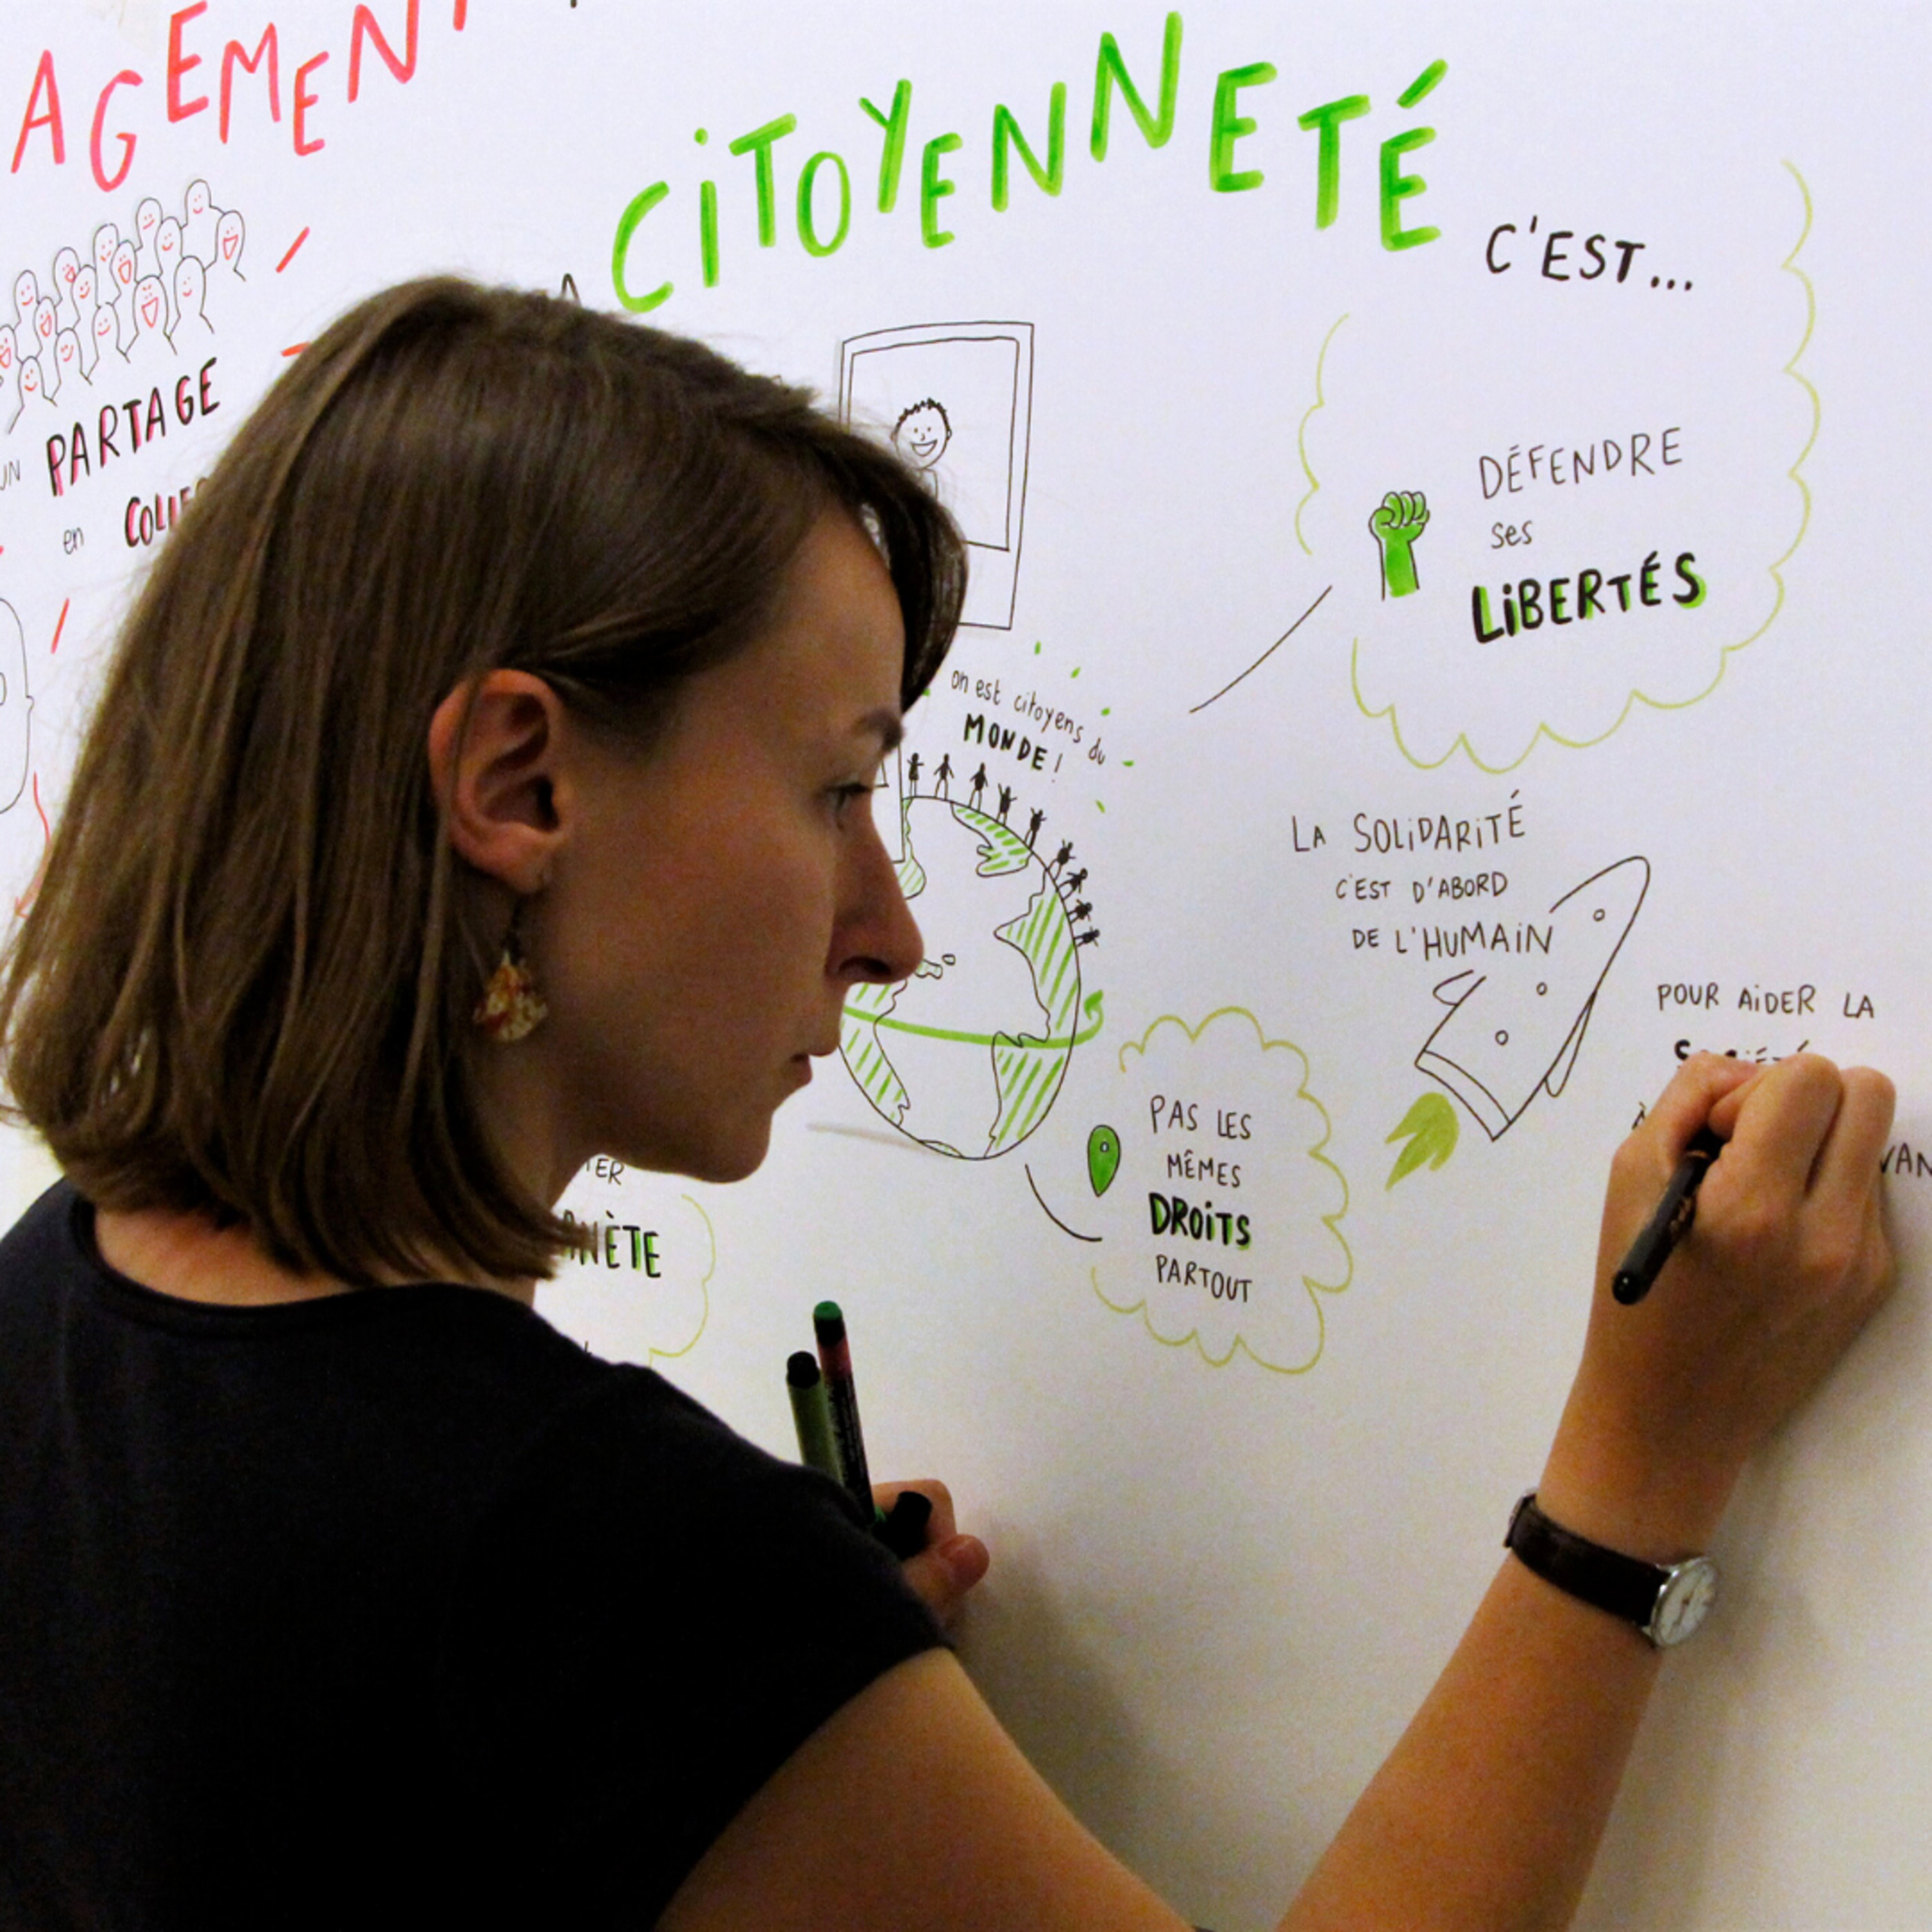 AGEMENT
UN PARTAGE
en
CITOYENNETÉ
C'EST...
DÉFENDRE
ses
LIBERTÉS
on est citoyens du
MONDE !
LA SOLIDARITÉ
C'EST D'ABORD
DE L'HUMAIN
POUR AIDER LA
PAS LES
MÊMES
DROITS
PARTOUT